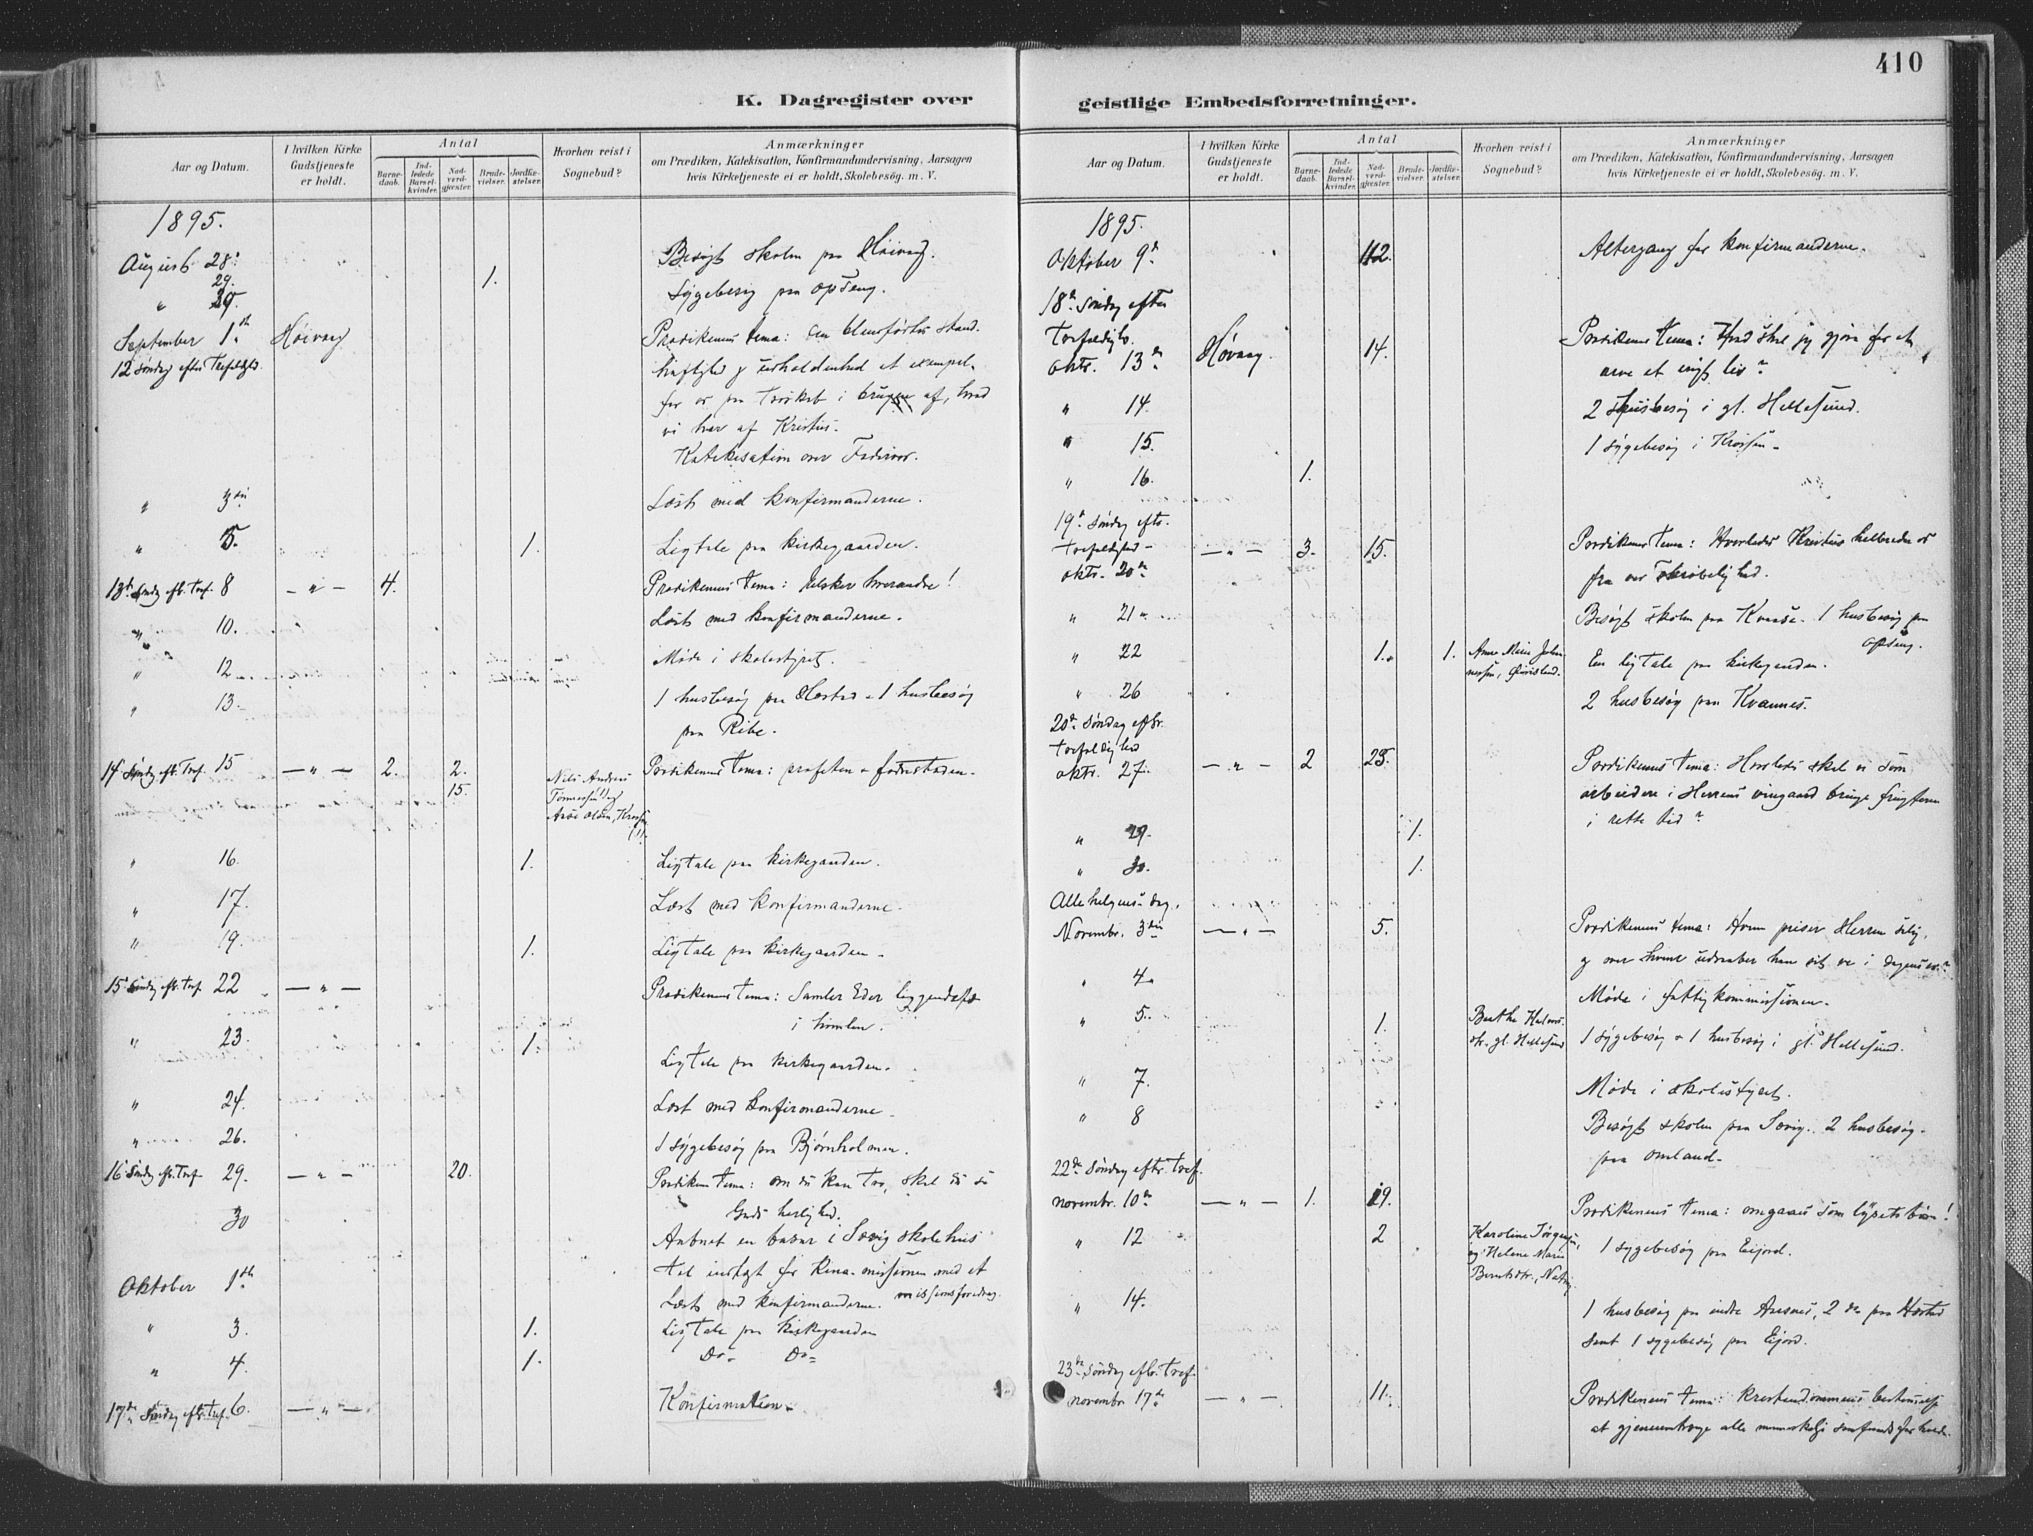 410
K. Dagregister over
geistlige Embedsforretninger.
Aar og Datum.
I hvilken Kirke Gudstjeneste er holdt.
Antal
Barnedaab.
Indledede Barselkvinder.
Nadverdgjester.
Brudevielser.
Jordfæstelser.
Hvorhen reist i Sognebud?
Anmærkninger
om Prædiken, Katekisation, Konfirmandundervisning, Aarsagen
hvis Kirketjeneste ei er holdt, Skolebesøg. m. V.
1895.
August 28. Besøgt skolen paa Høivaag.
29. 1.
" 29. Sygebesøg paa Opseng.
September 1ste Høivaag Prædikenens tema: den stand-
12 Søndag efter Trefoldighd. haftighed og udholdenhed et exempel
for os paa troskab i brugen af, hvad
vi har af Kristus.
Katekisation over Fadervor.
" 3die Læst med konfirmanderne.
" 5. 1. Ligtale paa kirkegaarden.
13de Søndag eft. Tref. 8 — " — 4. Prædikenens tema: Elsker hverandre!
" 10. Læst med konfirmanderne.
" 12 Møde i skolestyret.
" 13. 1 husbesøg paa Hæstad - 1 husbesøg
paa Ribe.
14 Søndag eft. Tref. 15 — " — 2. 2. Prædikenens tema: profeten & fødestaden.
15.
Nils Andreas
" 16. 1. Ligtale paa kirkegaarden.
" 17. Læst med konfirmanderne.
" 19. 1. Ligtale paa kirkegaarden.
15 Søndag eft. Tref. 22 — " — Prædikenens tema: Samler Eder liggendefæ
i himlen.
" 23. 1. Ligtale paa kirkegaarden.
" 24. Læst med konfirmanderne.
" 26. 1 sygebesøg paa Bjørnholmen.
16 Søndag eft. Tref. 29. — " — 20. Prædikenens tema: om du kan tro, skal du se
Guds herlighed.
30 Aabnet en basar i Sævig skolehus
til indtægt for Kina-missionen med et
missionsforedrag.
Oktober 1ste Læst med konfirmanderne.
" 3. 1. Ligtale paa kirkegaarden
" 4. 1. Do- Do-
17de Søndag eft. Tref. 6. — " — Konfirmation.
Aar og Datum.
I hvilken Kirke Gudstjeneste er holdt.
Antal
Barnedaab.
Indledede Barselkvinder.
Nadverdgjester.
Brudevielser.
Jordfæstelser.
Hvorhen reist i Sognebud?
Anmærkninger
om Prædiken, Katekisation, Konfirmandundervisning, Aarsagen
hvis Kirketjeneste ei er holdt, Skolebesøg. m. V.
1895.
Oktober 9de 112. Altergang for konfirmanderne.
18de Søndag efter
Trefoldighd.
oktr. 13de Høvaag. 14. Prædikenens tema: Hvad skal jeg gjøre for at
arve et evigt liv?
" 14. 2 husbesøg i gl. Hellesund.
" 15. 1 sygebesøg i Krossen.
" 16. 1.
19de Søndag eftr.
trefoldighed — " — 3. 15. Prædikenens tema: Hvorledes Kristus helbreder os
oktr. 20de fra vor skrøbelighed.
" 21 Besøgt skolen paa Kvaase. 1 husbesøg paa
Opseng.
" 22 1. 1. Anne Marie Johan- En ligtale paa kirkegaarden.
nessen,
" 26 2 husbesøg paa Kvannes.
20de Søndag eftr.
trefoldighed
oktr. 27. — " — 2 25. Prædikenens tema: Hvorledes skal vi som
arbeidere i Herrens vingaard bringe frugterne
i rette tid?
" 29. 1.
" 30. 1.
Allehelgens-dag,
Novembr. 3die — " — 5. Prædikenens tema: Hvem priser Herren salig,
og over hvem udraaber han sit ve i dagens ev.?
" 4. Møde i fattigkommissionen.
" 5. 1. Berthe
gl. Hellesund 1 sygebesøg & 1 husbesøg i gl. Hellesund.
" 7. Møde i skolestyret.
" 8 Besøgt skolen paa Sævig. 2 husbesøg
paa Omland.
22de Søndag eftr. tref.
novembr. 10de — " — 1. 19. Prædikenens tema: omgaaes som lysets børn!
" 12 2 Karoline Jørgensen, 1 sygebesøg paa Eijord.
og Helene Marie
Berntsdtr.,
" 14. 1 husbesøg paa indre Aasnes, 2 do paa Hæstad
samt 1 sygebesøg paa Eijord.
23de Søndag eftr. tref.
novembr. 17de — " — 11. Prædikenens tema: kristendommens bestemmelse
at gjennemtrænge alle menneskelige samfundsforholde.